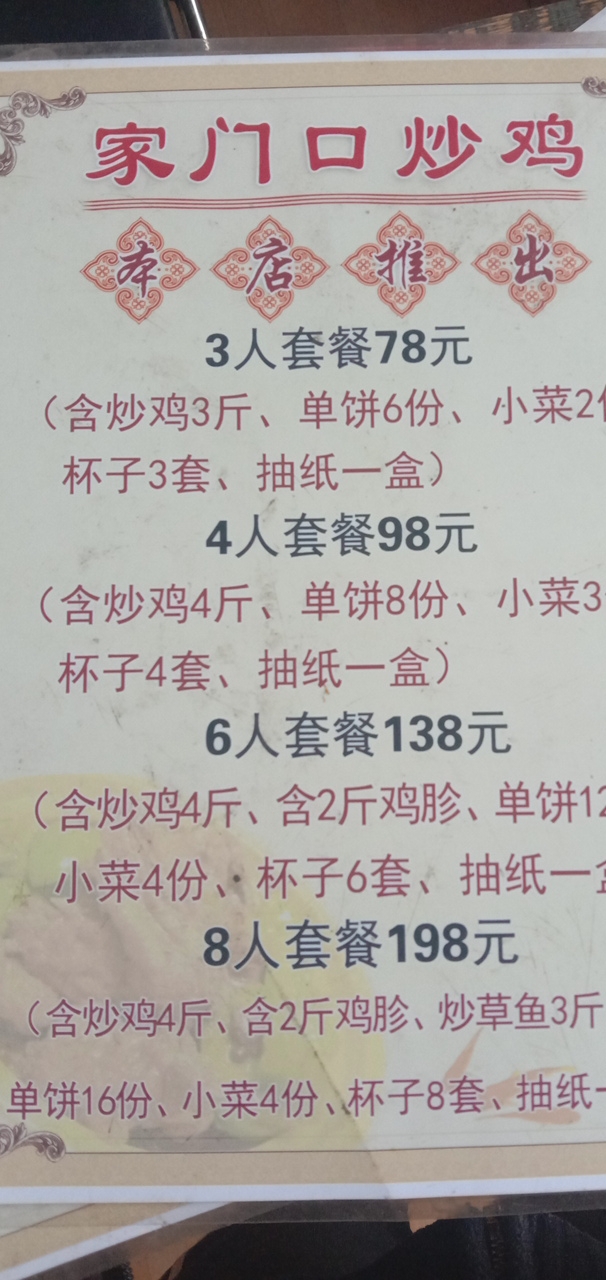 家门口炒鸡
本店推出
3人套餐78元
（含炒鸡3斤、单饼6份、小菜2
杯子3套、抽纸一盒）
4人套餐98元
（含炒鸡4斤、单饼8份、小菜3
杯子4套、抽纸一盒）
6人套餐138元
（含炒鸡4斤、含2斤鸡胗、单饼12
小菜4份、杯子6套、抽纸一
8人套餐198元
（含炒鸡4斤、含2斤鸡胗、炒草鱼3斤
单饼16份、小菜4份、杯子8套、抽纸一